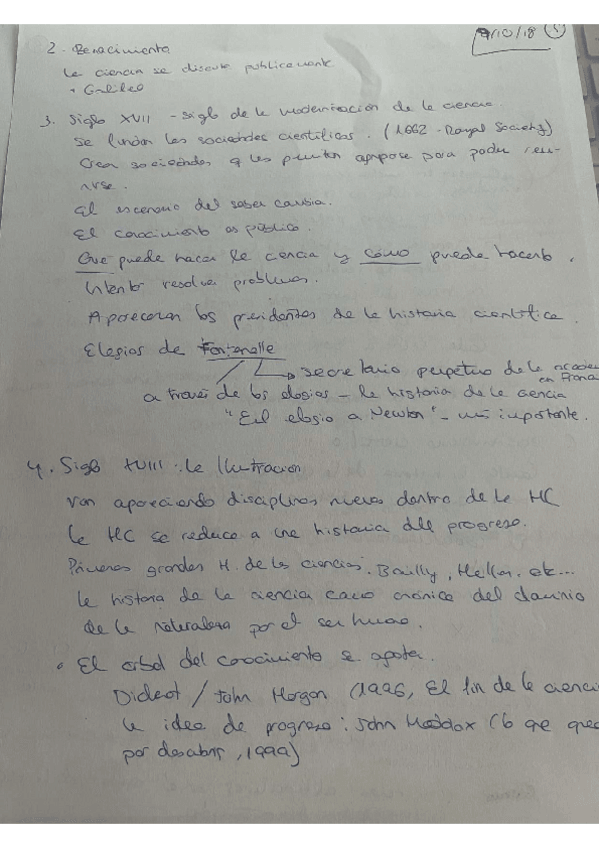 9/10/18 (5)
2. Renacimiento
La ciencia se discute publicamente
• Galileo
3. Siglo XVII - siglo de la modernización de la ciencia
Se fundan las sociedades científicas. (1662 - Royal Society)
Crean sociedades q les permiten agruparse para poder reu-
nirse.
El escenario del saber cambia.
El conocimiento es público.
Que puede hacer la ciencia y como puede hacerlo.
Intentar resolver problemas.
Aparecen los precedentes de la historia científica.
Elogios de Fontenelle
secretario perpetuo de la
en Francia
a través de los elogios - la historia de la ciencia
"El elogio a Newton" - muy importante.
4. Siglo XVIII: La Ilustración
Van apareciendo disciplinas nuevas dentro de la HC
la HC se reduce a una historia del progreso.
Primeras grandes H. de las ciencias. Bailly, Heller, etc...
la historia de la ciencia como crónica del dominio
de la naturaleza por el ser humano.
• El arbol del conocimiento se agota.
Diderot / John Horgan (1996, El fin de la ciencia
la idea de progreso: John Maddox (lo que queda
por descubrir, 1999)